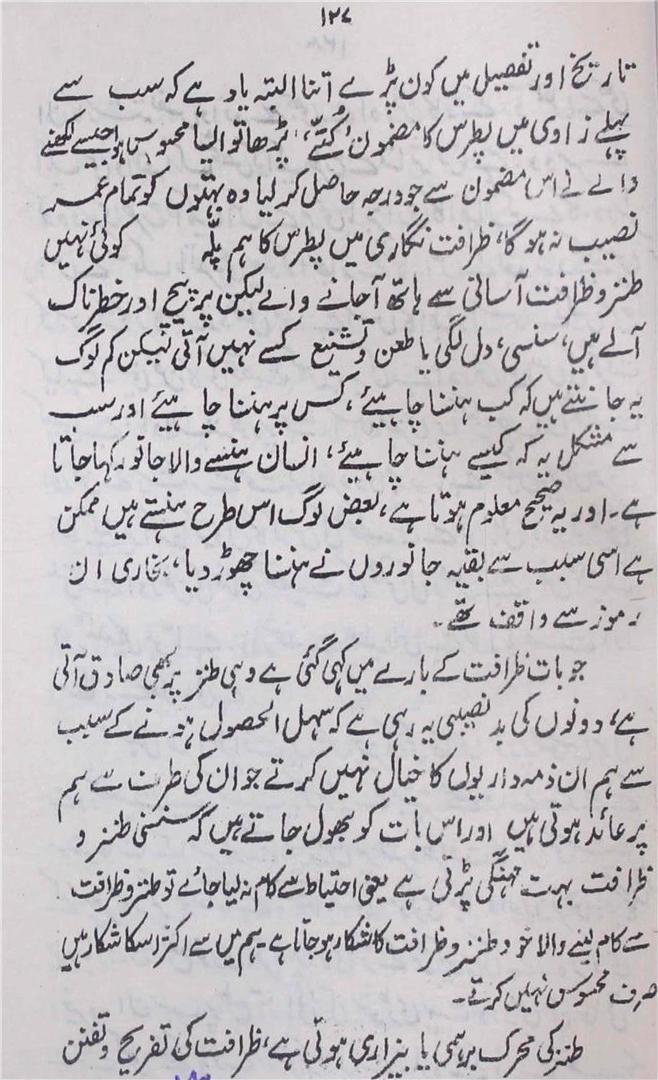 ۱۲۷
تاریخ اور تفصیل میں کون پڑے اتنا البتہ یاد ہے کہ سب سے
پہلے زاوی میں پطرس کا مضمون 'کتّے' پڑھا تو ایسا محسوس ہوا جیسے لکھنے
والے نے اس مضمون سے جو درجہ حاصل کر لیا وہ بہتوں کو تمام عمر
نصیب نہ ہوگا، ظرافت نگاری میں پطرس کا ہم پلّہ کوئی نہیں
طنز و ظرافت آسانی سے ہاتھ آجانے والے لیکن پر پیچ اور خطرناک
آلے ہیں، ہنسی، دل لگی یا طعن و تشنیع کسے نہیں آتی لیکن کم لوگ
یہ جانتے ہیں کہ کب ہنسنا چاہیئے، کس پر ہنسنا چاہیئے اور سب
سے مشکل یہ کہ کیسے ہنسنا چاہیئے، انسان ہنسنے والا جانور کہا جاتا
ہے۔ اور یہ صحیح معلوم ہوتا ہے، بعض لوگ اس طرح ہنستے ہیں ممکن
ہے اسی سبب سے بقیہ جانوروں نے ہنسنا چھوڑ دیا، بخاری ان
رموز سے واقف تھے۔
جو بات ظرافت کے بارے میں کہی گئی ہے وہی طنز پر بھی صادق آتی
ہے، دونوں کی بدنصیبی یہ رہی ہے کہ سہل الحصول ہونے کے سبب
سے ہم ان ذمہ داریوں کا خیال نہیں کرتے جو ان کی طرف سے ہم
پر عائد ہوتی ہیں اور اس بات کو بھول جاتے ہیں کہ سستی طنز و
ظرافت بہت مہنگی پڑتی ہے یعنی احتیاط سے کام نہ لیا جائے تو طنز و ظرافت
سے کام لینے والا خود طنز و ظرافت کا شکار ہو جاتا ہے۔ ہم میں سے اکثر اسکا شکار ہیں
صرف محسوس نہیں کرتے۔
طنز کی محرک برہمی یا بیزاری ہوتی ہے، ظرافت کی تفریح و تفنن